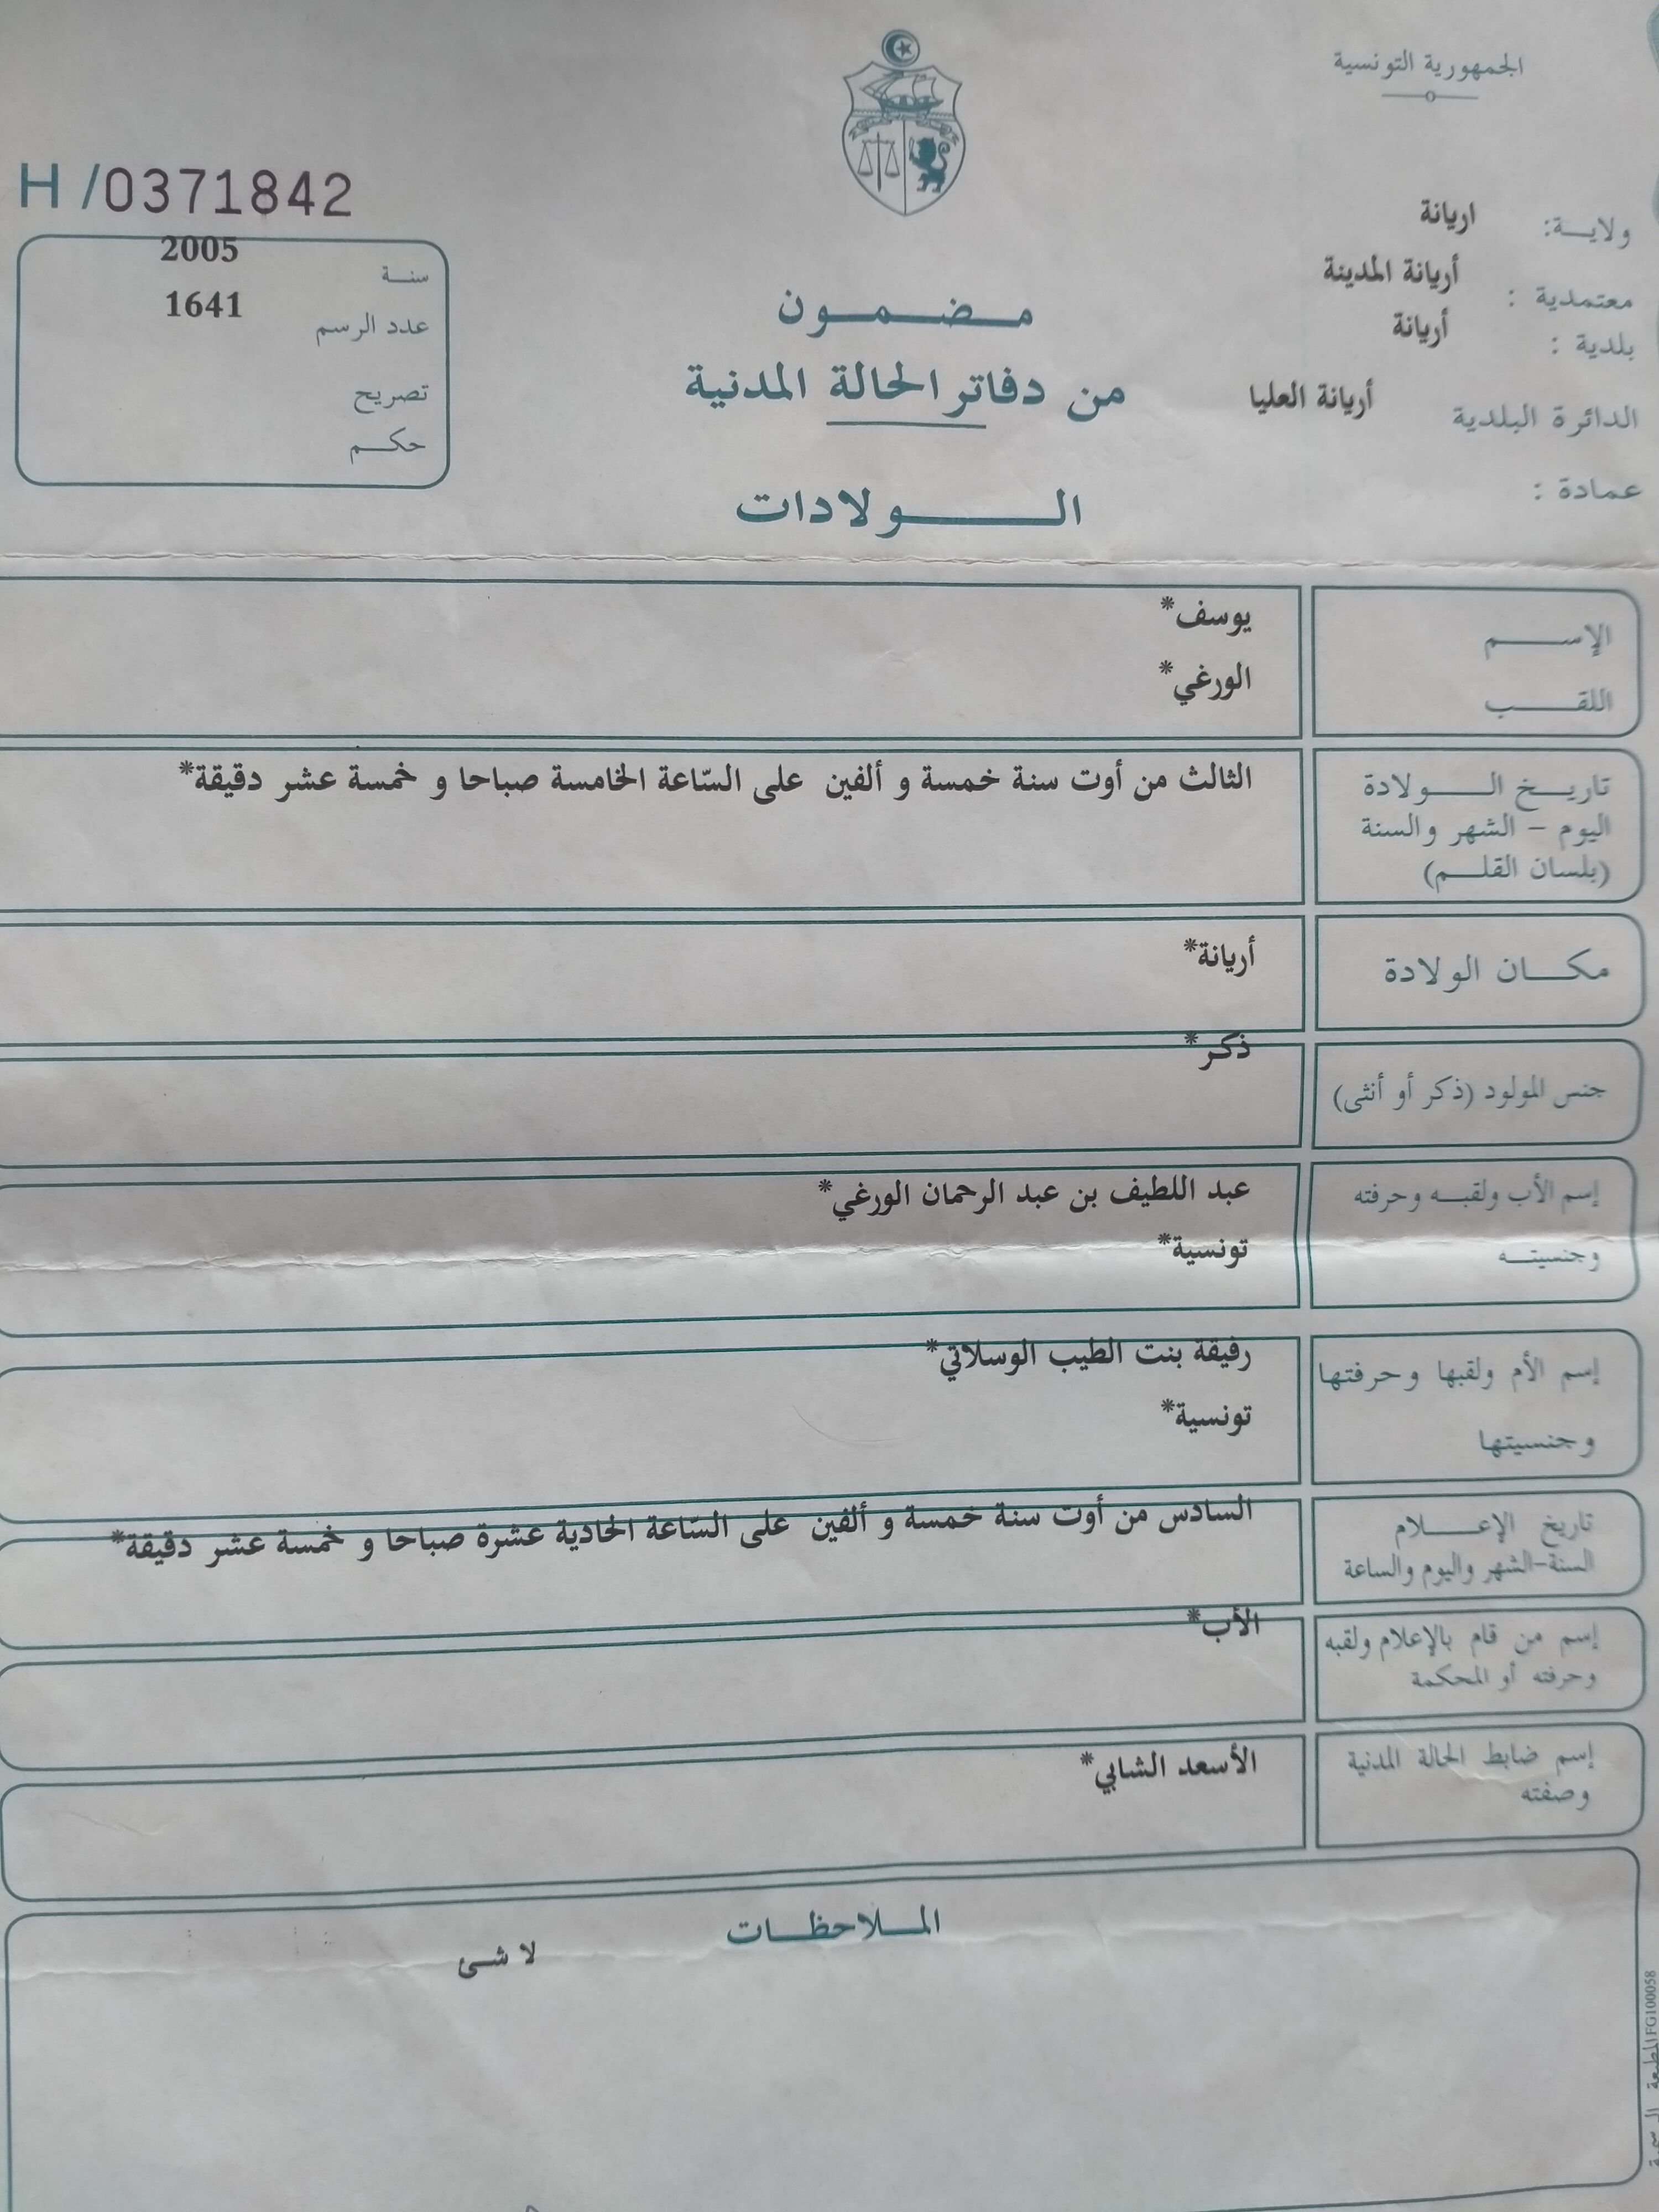 الجمهورية التونسية
H /0371842
ولايـــة: اريانة
معتمدية : أريانة المدينة
بلدية : أريانة
الدائرة البلدية أريانة العليا
عمادة :
سنــة 2005
عدد الرسم 1641
تصريح
حكـــم
مـــضـــمـــون
من دفاتر الحالة المدنية
الـــــــولادات
الإســــــم يوسف*
اللقــــــب الورغي*
تاريـــخ الـــــولادة الثالث من أوت سنة خمسة و ألفين على السّاعة الخامسة صباحا و خمسة عشر دقيقة*
اليوم – الشهر والسنة
(بلسان القلـــم)
مكـــان الولادة أريانة*
جنس المولود (ذكر أو أنثى) ذكر*
إسم الأب ولقبــه وحرفته عبد اللطيف بن عبد الرحمان الورغي*
وجنسيتــه تونسية*
إسم الأم ولقبها وحرفتها رفيقة بنت الطيب الوسلاتي*
وجنسيتها تونسية*
تاريخ الإعــــلام السادس من أوت سنة خمسة و ألفين على السّاعة الحادية عشرة صباحا و خمسة عشر دقيقة*
السنة-الشهر واليوم والساعة
إسم من قام بالإعلام ولقبه الأب*
وحرفته أو المحكمة
إسم ضابط الحالة المدنية الأسعد الشابي*
وصفته
المـــلاحظـــات
لا شئ
المطبعة الرسمية FG100058